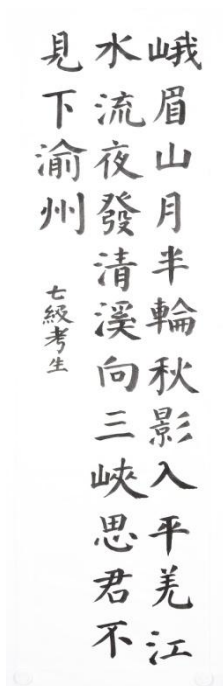 峨眉山月半輪秋影入平羌江
水流夜發清溪向三峽思君不
見下渝州
七級考生